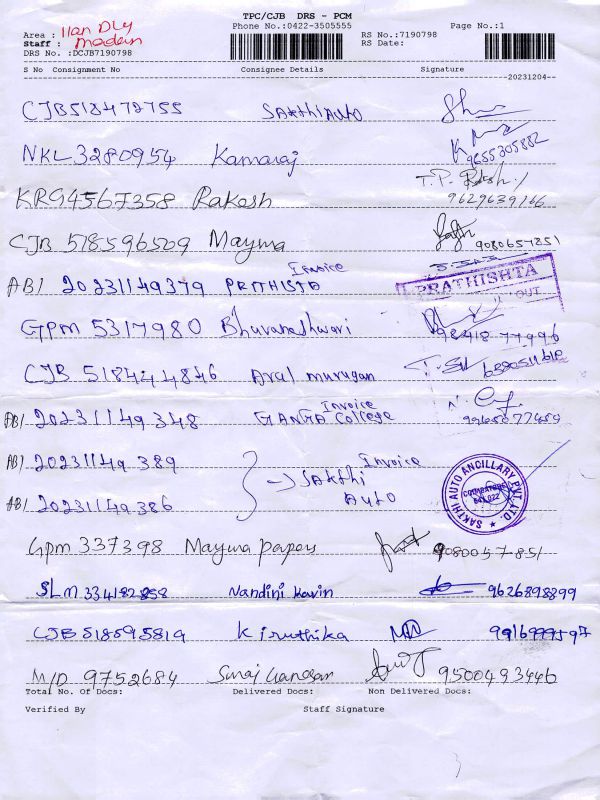 TPC/CJB DRS - PCM
Phone No.:0422-3505555 Page No.:1
Area : Ilan DLy
Staff : Madan
DRS No. :DCJB7190798
RS No.:7190798
RS Date:
S No Consignment No Consignee Details Signature
20231204
CJB518472755 SakthiAuto
NKL3280954 Kamaraj 9655305882
KRG4567358 Rakesh 9629639266
CJB 518596509 Mayura 9080657851
ABI 20231149379 PRITHISTA Invoice
PRATHISHTA
OUT
GPM 5317980 Bhuvaneshwari 98418 77996
CJB 518444846 Aral murugan
ABI 20231149348 GANGA College Invoice
ABI 20231149389 Invoice
Sakthi Auto
ABI 20231149386
SAKTHI AUTO ANCILLARY PVT. LTD.
GPM 337398 Mayura papers 9080057851
SLM 334182858 Nandini Kavin 9626898899
CJB 518595819 Kiruthika
M/D 9752684 9500493446
Total No. Of Docs: Delivered Docs: Non Delivered Docs:
Verified By Staff Signature